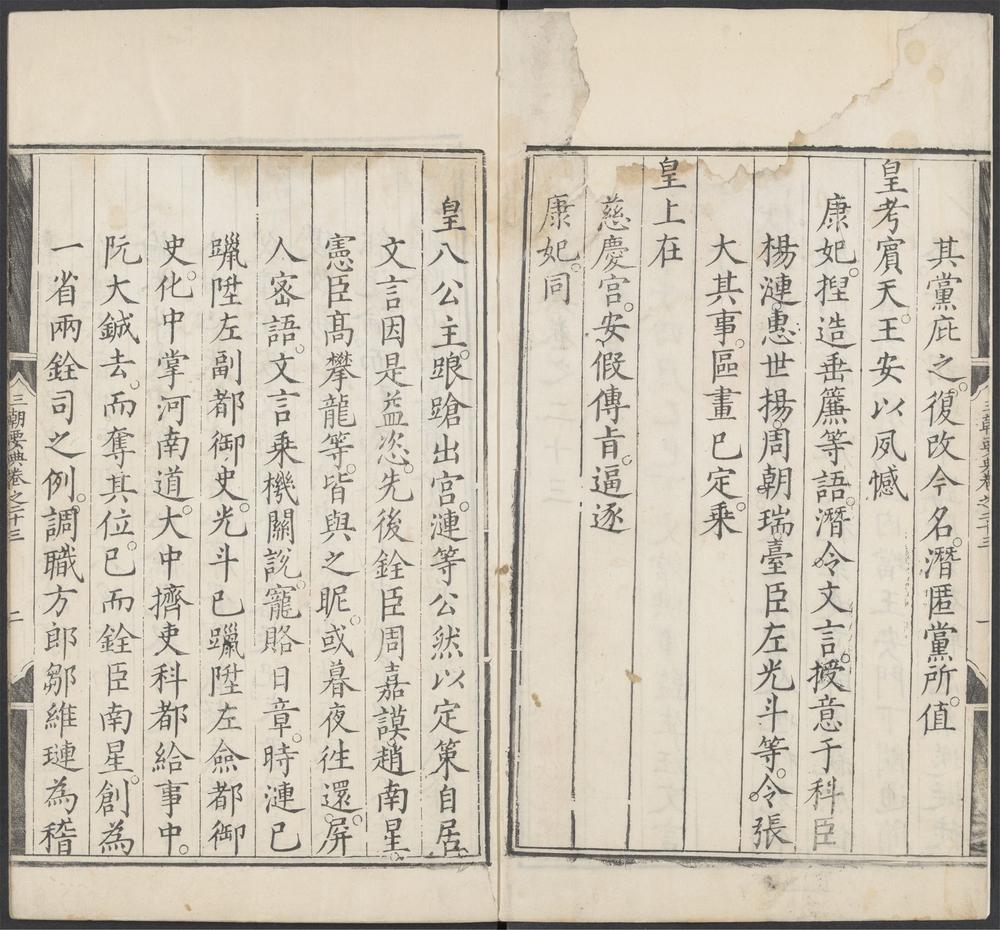 其黨庇之。復改今名。潛匿黨所。值
皇考賓天。王安以夙憾
康妃。揑造垂簾等語。潛令文言。授意于科臣
楊漣。惠世揚。周朝瑞。臺臣左光斗等。令張
大其事。區畫已定。乘
皇上在
慈慶宮。安假傳旨。逼逐
康妃。同
三朝要典卷之二十三
一
皇八公主。踉蹌出宮。漣等公然以定策自居。
文言因是益恣。先後銓臣周嘉謨。趙南星。
憲臣高攀龍等。皆與之昵。或暮夜徃還。屏
人宻語。文言乘機關說。寵賂日章。時漣已
躐陞左副都御史。光斗已躐陞左僉都御
史。化中掌河南道。大中擠吏科都給事中。
阮大鋮去。而奪其位。已而銓臣南星。創為
一省兩銓司之例。調職方郎鄒維璉為稽
三朝要典卷之二十三
二